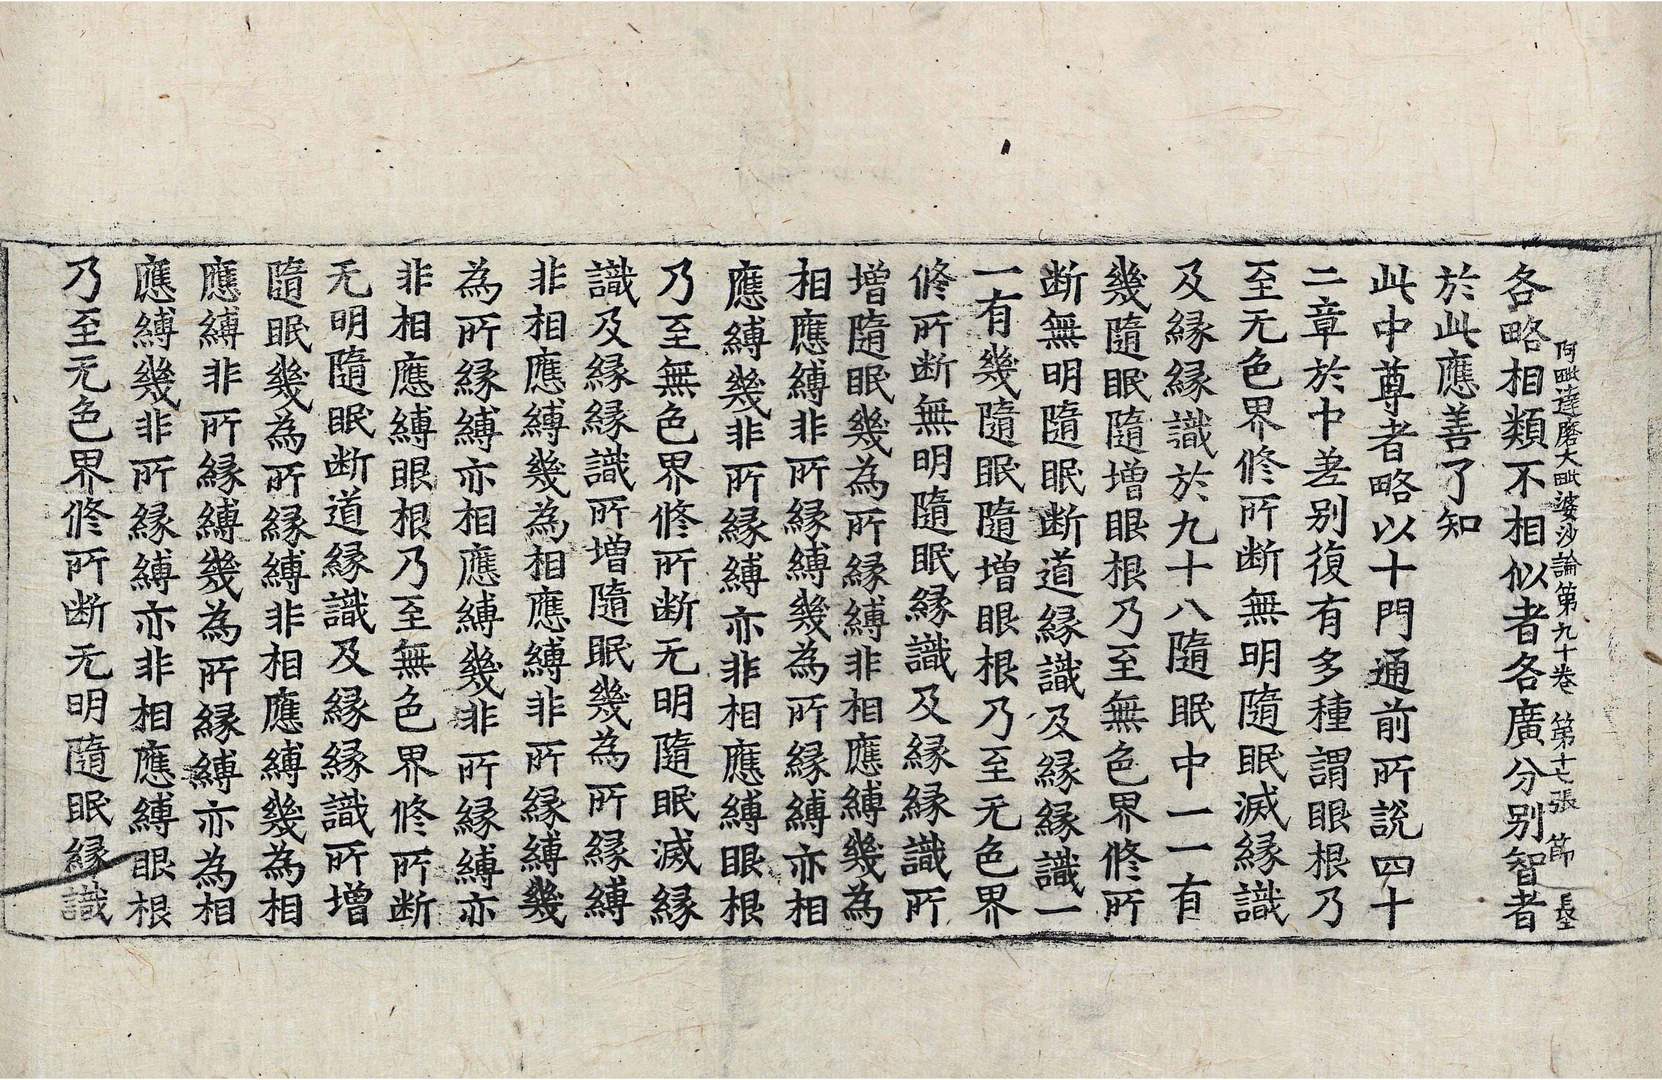 阿毗達磨大毗婆沙論第九十卷 第十七張 節
各略相類不相似者各廣分別智者
於此應善了知
此中尊者略以十門通前所說四十
二章於中差別復有多種謂眼根乃
至无色界修所断無明隨眠滅縁識
及縁縁識於九十八隨眠中一一有
幾隨眠隨增眼根乃至無色界修所
断無明隨眠断道縁識及縁縁識一
一有幾隨眠隨增眼根乃至无色界
修所断無明隨眠縁識及縁縁識所
增隨眠幾為所縁縛非相應縛幾為
相應縛非所縁縛幾為所縁縛亦相
應縛幾非所縁縛亦非相應縛眼根
乃至無色界修所断无明隨眠滅縁
識及縁縁識所增隨眠幾為所縁縛
非相應縛幾為相應縛非所縁縛幾
為所縁縛亦相應縛幾非所縁縛亦
非相應縛眼根乃至無色界修所断
无明隨眠断道縁識及縁縁識所增
隨眠幾為所縁縛非相應縛幾為相
應縛非所縁縛幾為所縁縛亦為相
應縛幾非所縁縛亦非相應縛眼根
乃至无色界修所断无明隨眠縁識